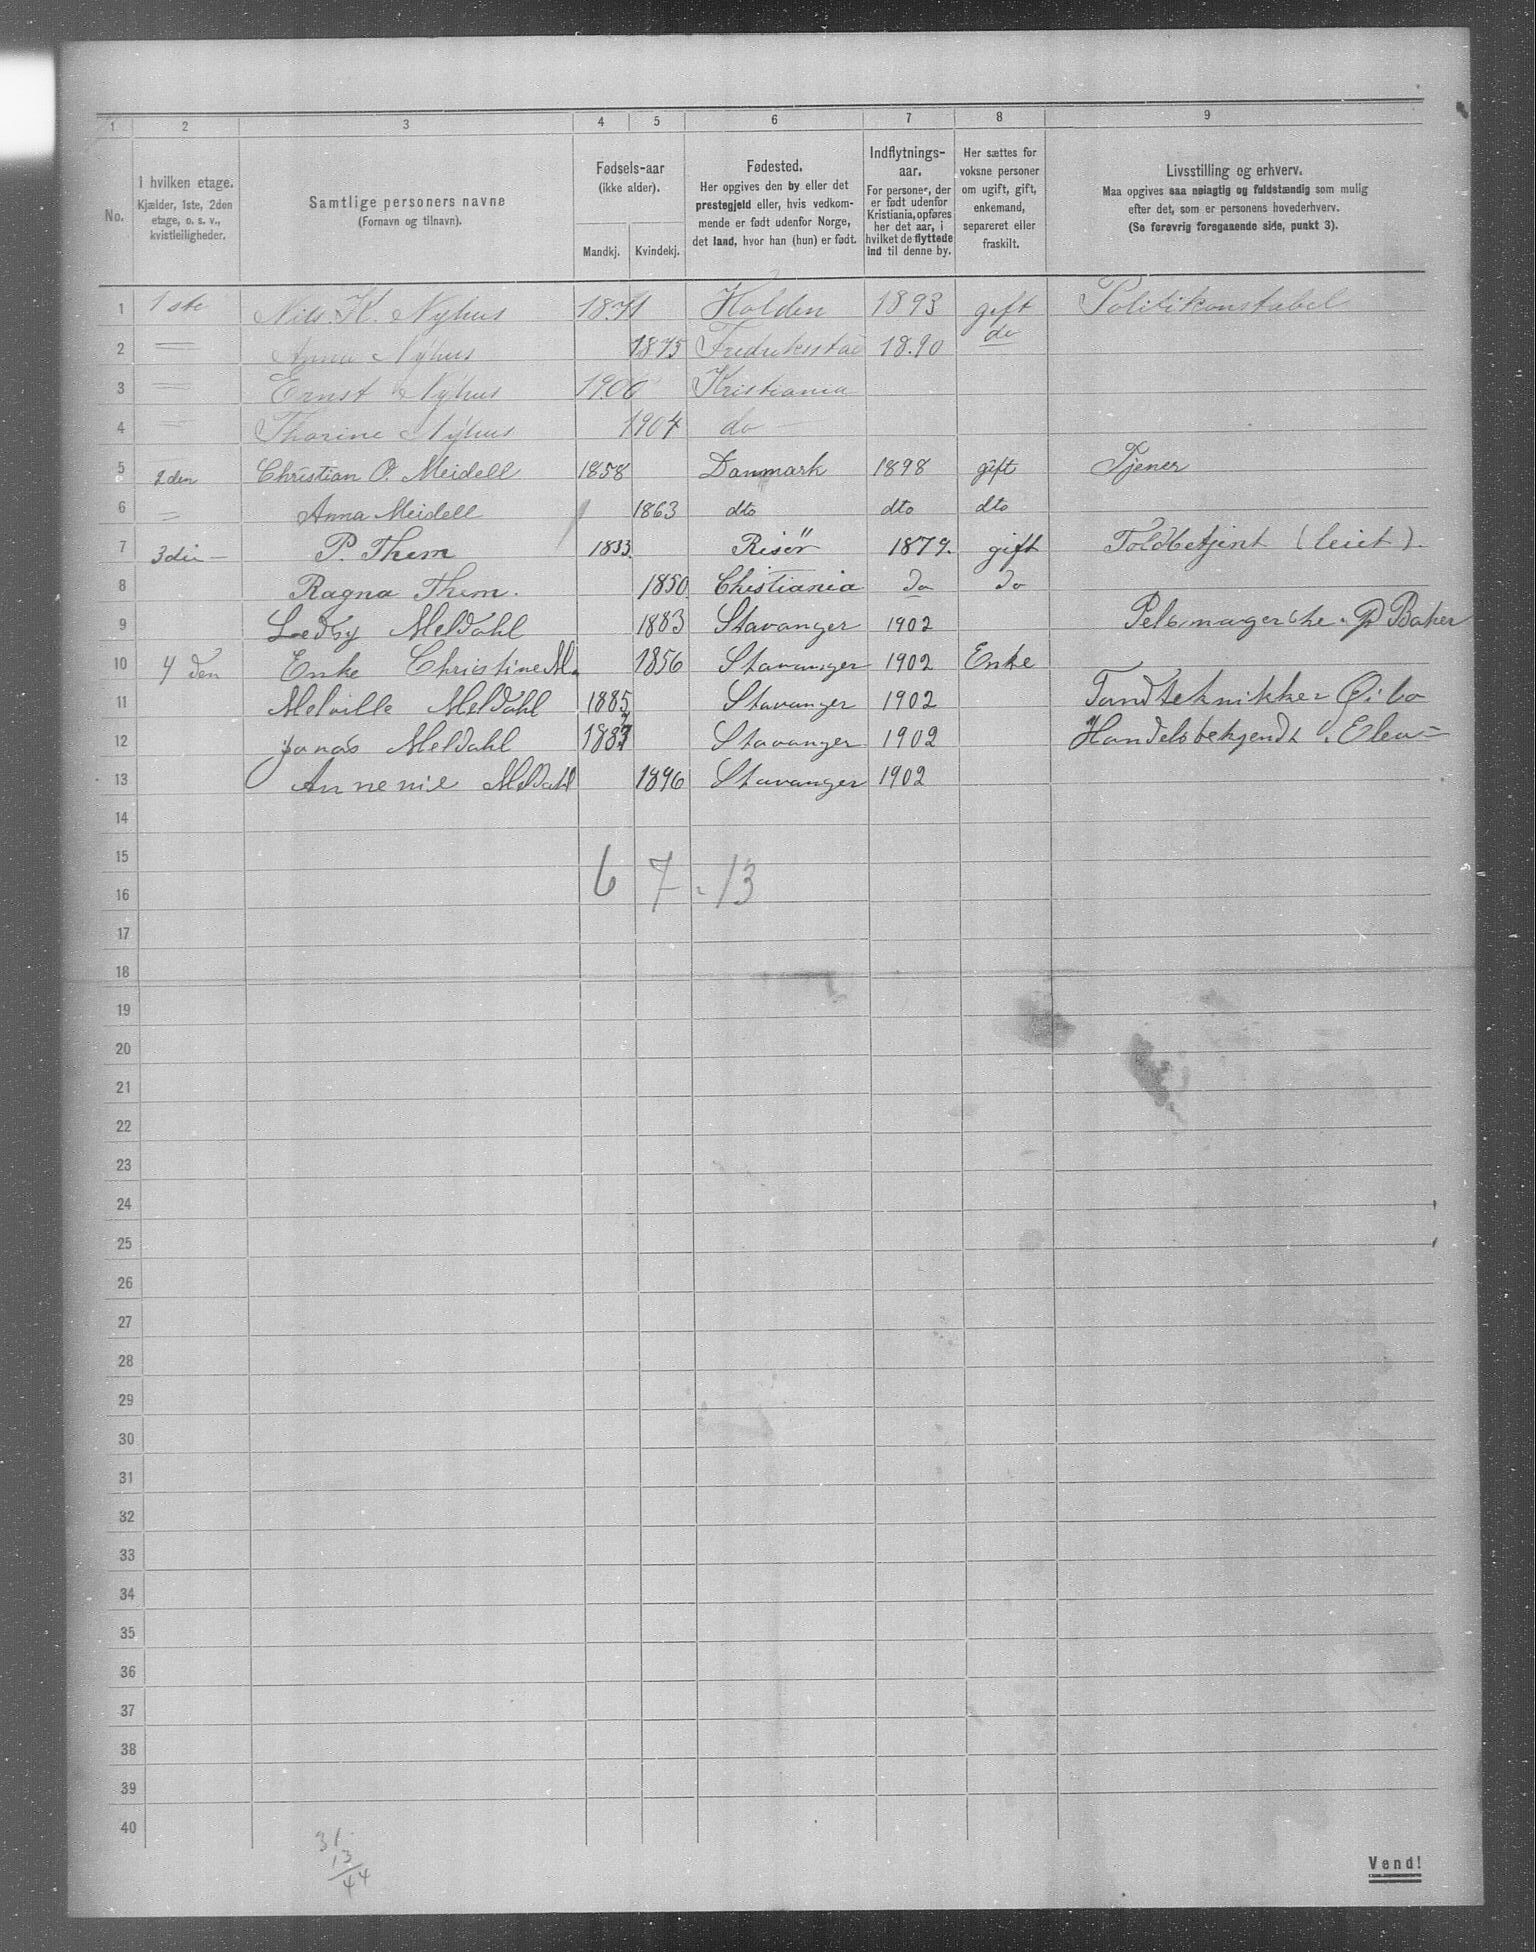 1 2 3 4 5 6 7 8 9
No. I hvilken etage. Kjælder, 1ste, 2den etage, o. s. v., kvistleiligheder. Samtlige personers navne (Fornavn og tilnavn). Fødsels-aar (ikke alder). Mandkj. Kvindekj. Fødested. Her opgives den by eller det prestegjeld eller, hvis vedkommende er født udenfor Norge, det land, hvor han (hun) er født. Indflytnings-aar. For personer, der er født udenfor Kristiania, opføres her det aar, i hvilket de flyttede ind til denne by. Her sættes for voksne personer om ugift, gift, enkemand, separeret eller fraskilt. Livsstilling og erhverv. Maa opgives saa nøiagtig og fuldstændig som mulig efter det, som er personens hovederhverv. (Se forøvrig foregaaende side, punkt 3).
1 1ste Nils. K. Nyhus 1871 Holden 1893 gift Politikonstabel
2 Anna Nyhus 1875 Fredriksstad 1890 do
3 Ernst Nyhus 1900 Kristiania
4 Thorine Nyhus 1904 do
5 2den Christian O. Meidell 1858 Danmark 1898 gift Tjener
6 Anna Meidell 1863 dto dto dto
7 3die P. Them 1833 Risør 1879. gift Toldbetjent
8 Ragna Them. 1850 Christiania do do
9 Meldahl 1883 Stavanger 1902 Baker
10 4 den Enke Christine M. 1856 Stavanger 1902 Enke
11 Melville Meldahl 1885 Stavanger 1902 Tandteknikker
12 Jonas Meldahl Stavanger 1902
13 Annenie Meldahl 1896 Stavanger 1902
14
15
6 7 - 13
16
17
18
19
20
21
22
23
24
25
26
27
28
29
30
31
32
33
34
35
36
37
38
39
40
31
13
44
Vend!